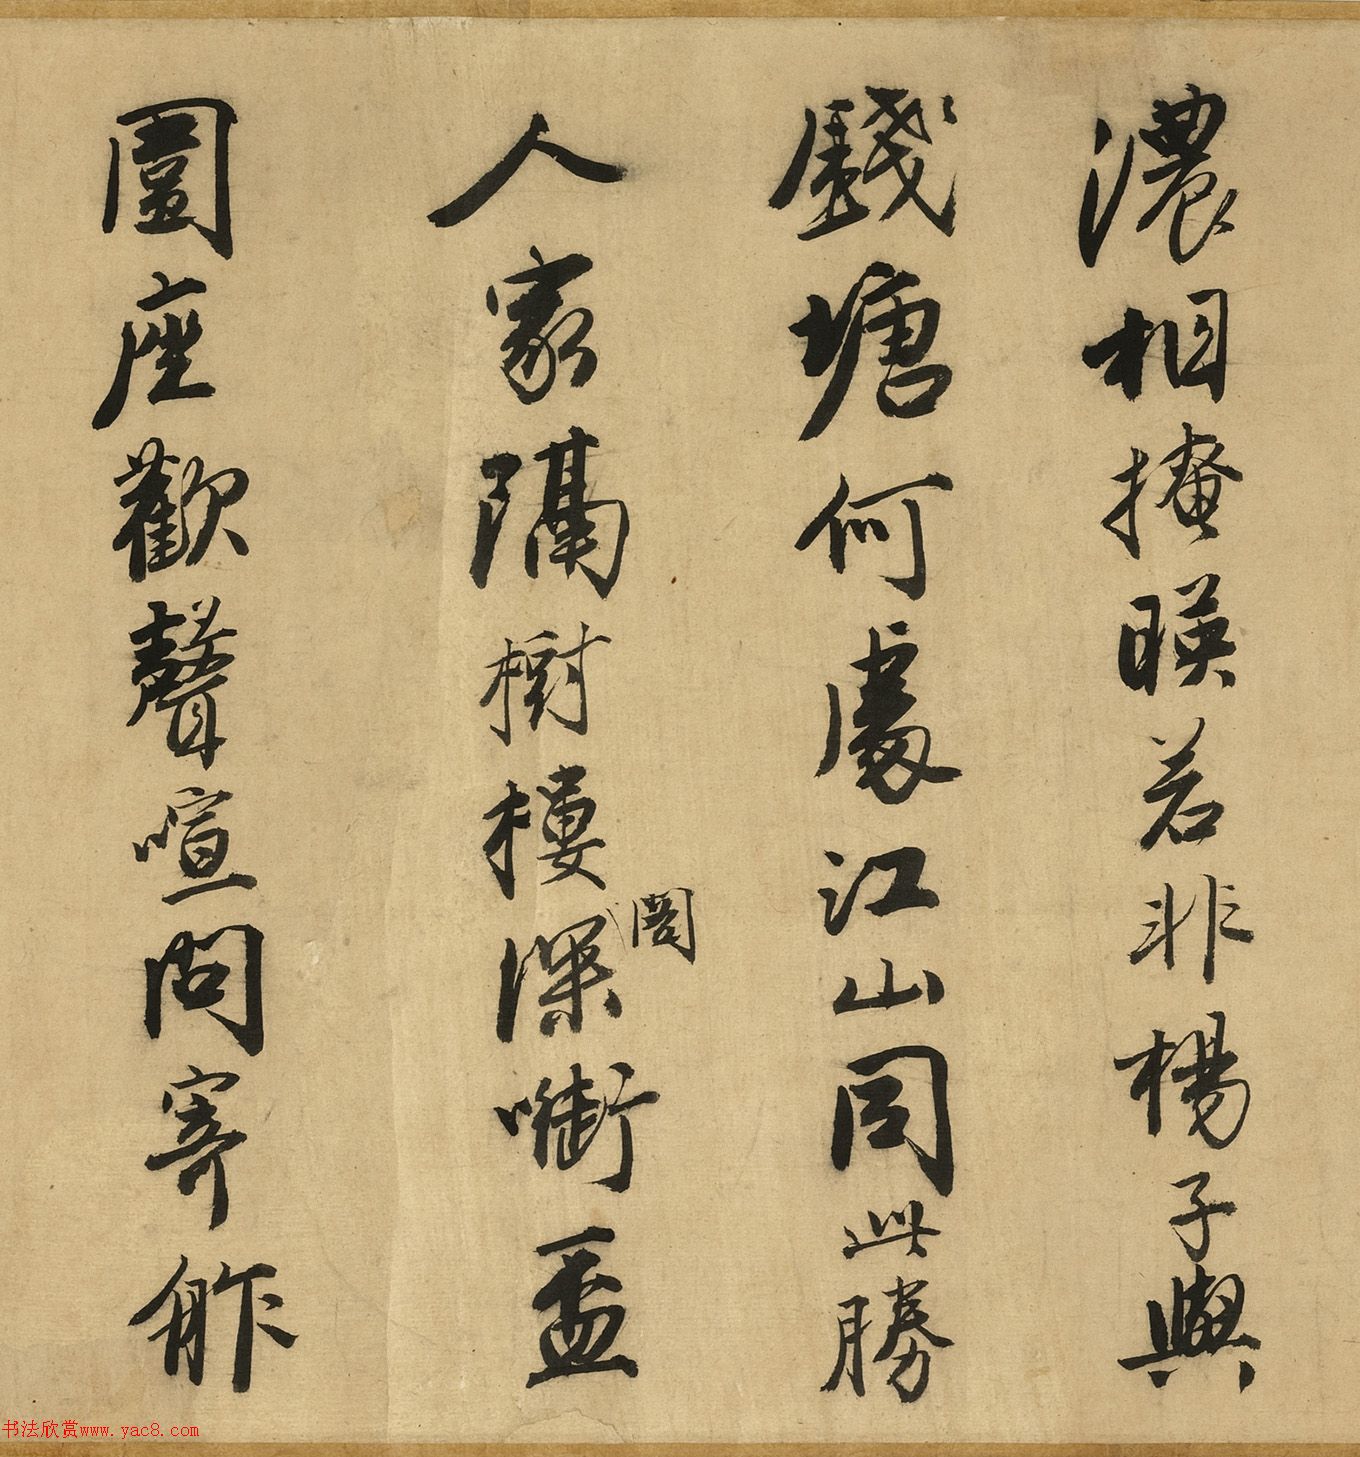 濃相掩暎若非楊子與
錢塘何處江山同此勝
人家隔樹樓閣深啣盃
圍座歡聲喧問寄舴
书法欣赏www.yac8.com